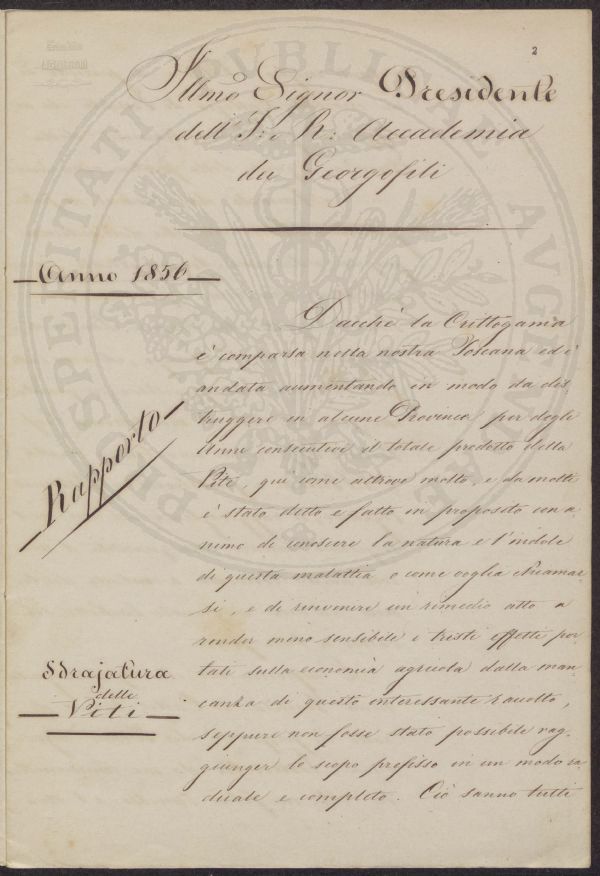 2
Illmo Signor Presidente
dell' I: e R: Accademia
dei Georgofili
Anno 1856
Rapporto
Sdrajatura
delle
Viti
Dacchè la Crittogama
è comparsa nella nostra Toscana ed è
andata aumentando in modo da dis
truggere in alcune Provincie per degli
Anni consecutivi il totale prodotto della
Vite, qui come altrove molto, e da molti
è stato detto e fatto in proposito con a
nimo di conoscere la natura e l'indole
di questa malattia o come voglia chiamar
si, e di rinvenire un rimedio atto a
render meno sensibile i tristi effetti por
tati sulla economia agricola dalla man
canza di questo interessante raccolto,
seppure non fosse stato possibile rag
giunger lo scopo prefisso in un modo ra
dicale e completo. Ciò sanno tutti
PROSPERITATI PUBLICAE AUGENDAE